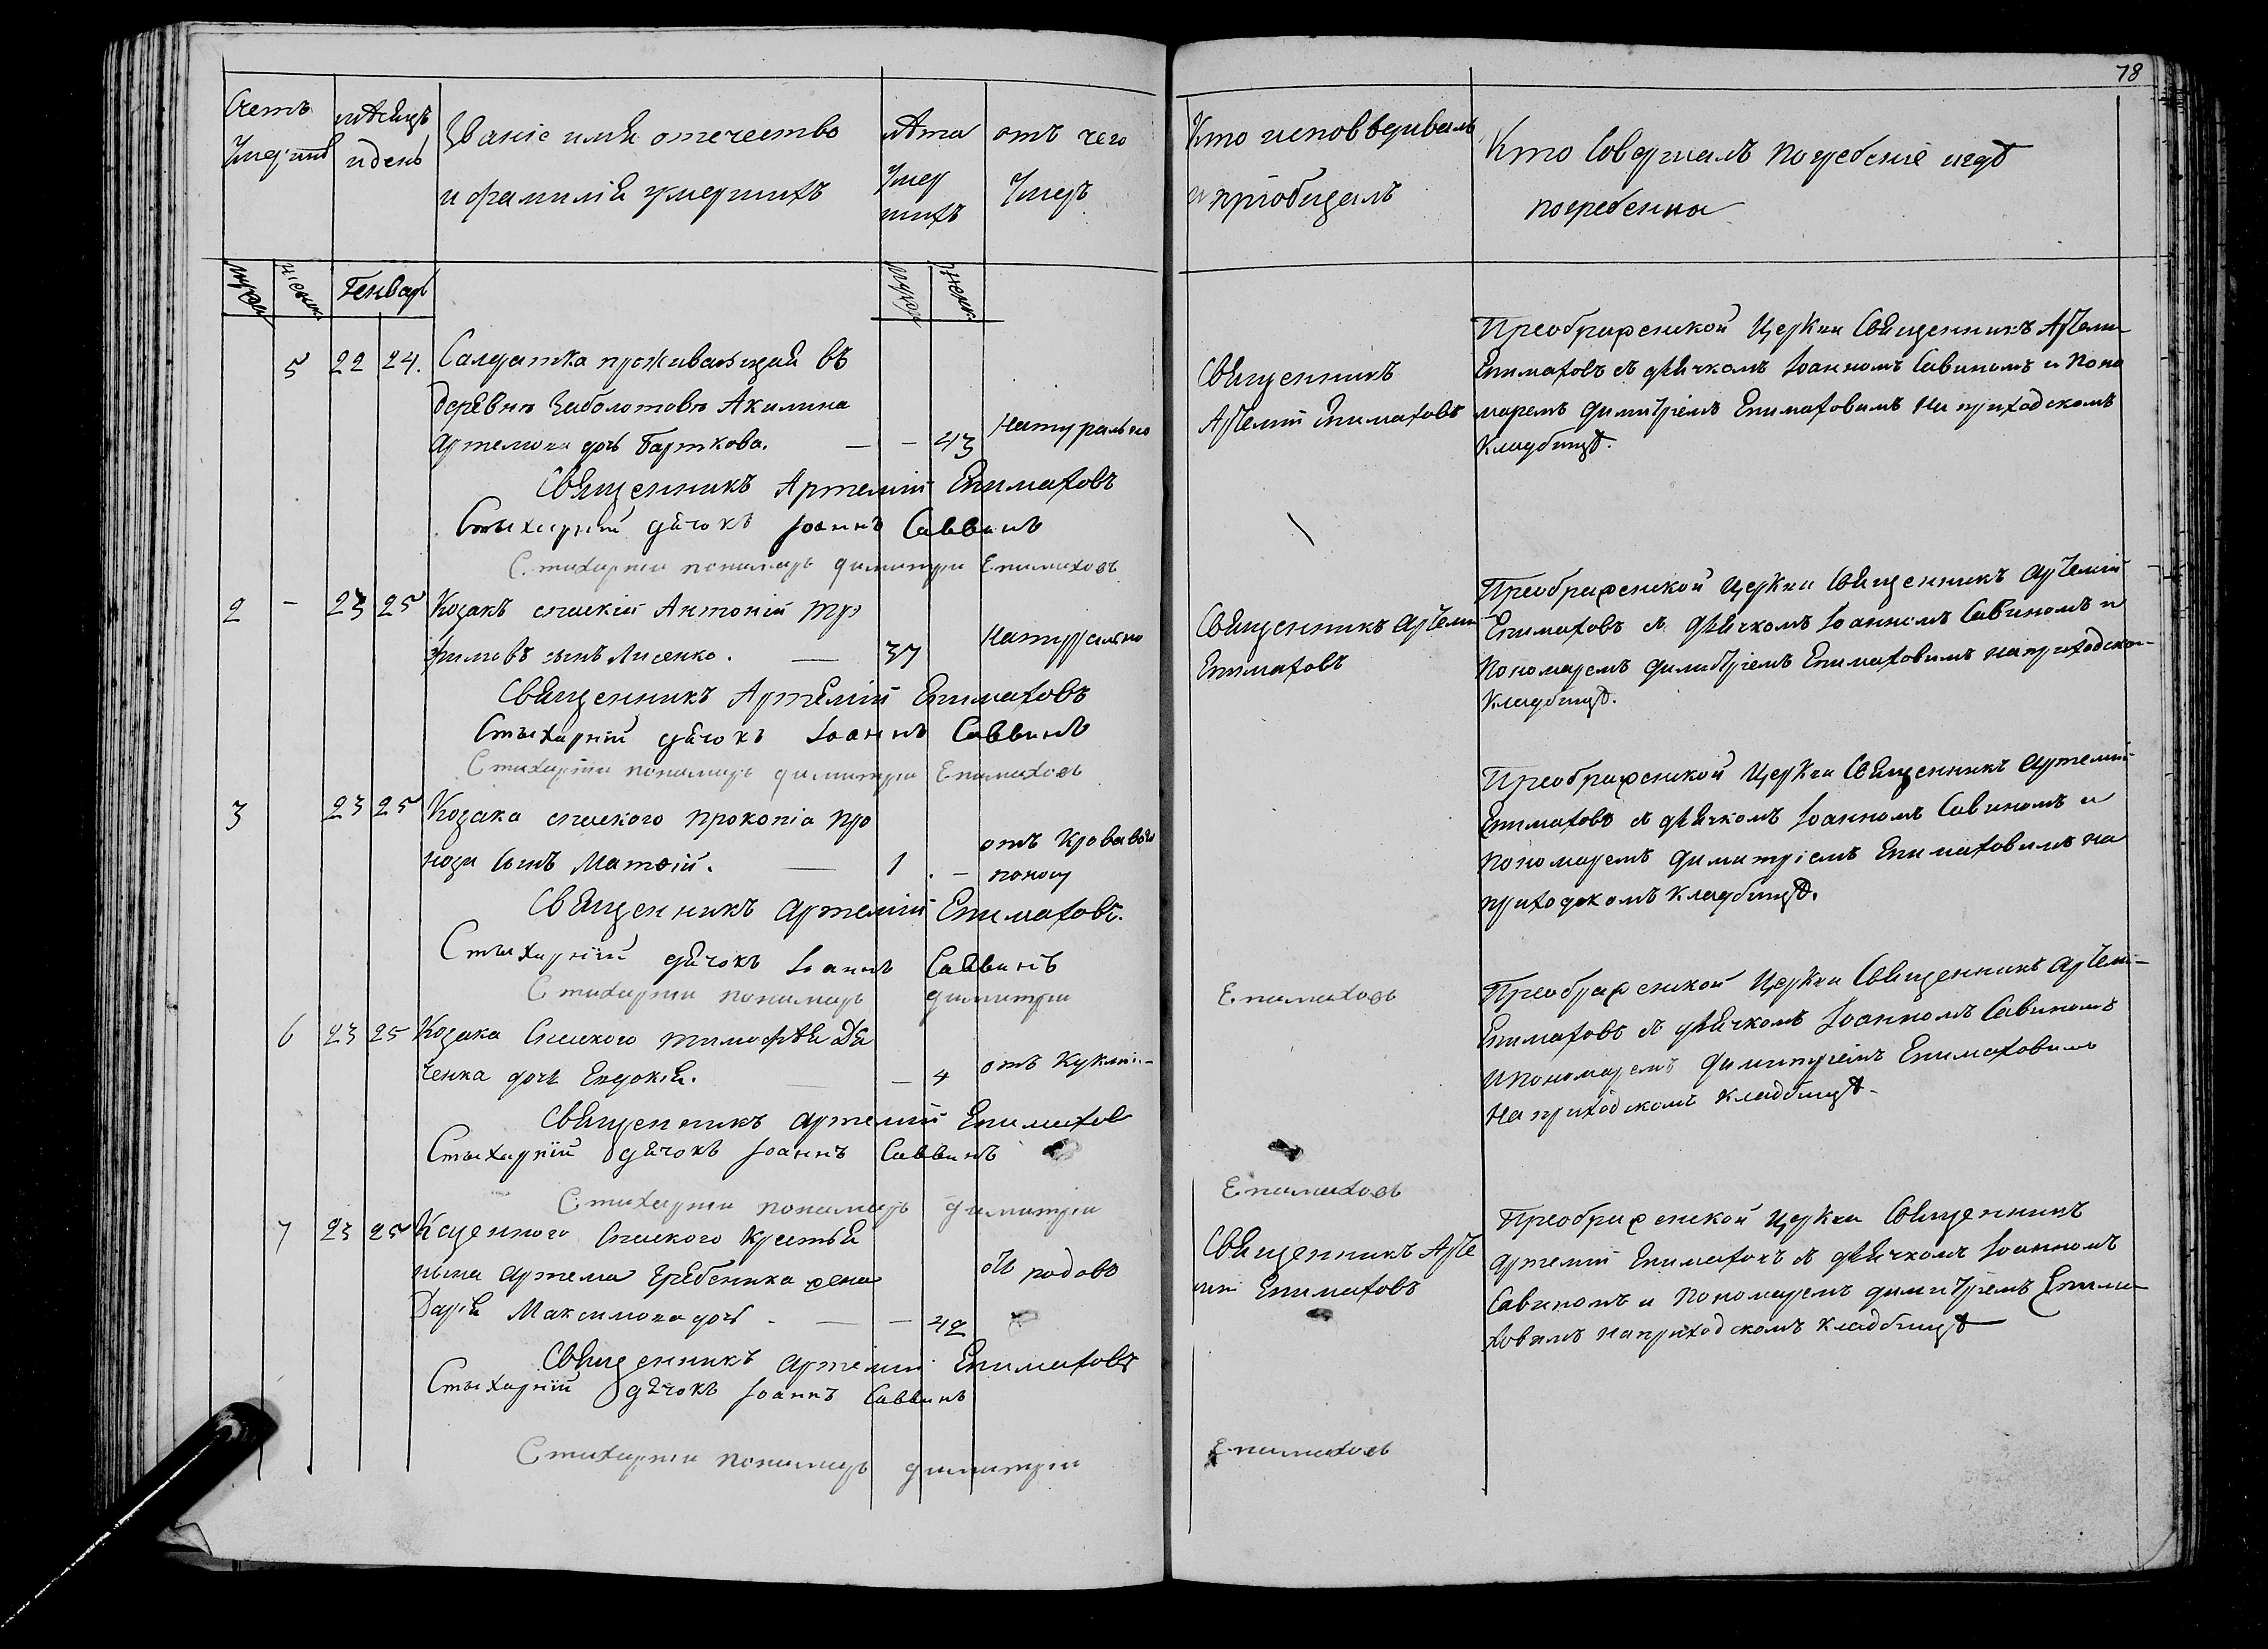 78
Счетъ умершихъ
мѣсяцъ и день
Званіе имя отечество
и фамилія умершихъ
Лѣта умершихъ
отъ чего
умеръ
Кто исповѣдивалъ
и пріобщалъ
Кто Совершалъ погребеніе и гдѣ
погребены
мужеи
женск
Генварь
мужеи
женск
5 22 24. Салдатка проживающая въ
деревнѣ Заболотовѣ Акилина
Артемова дочь Барткова. — - 43
Натурально
Священникъ
Артемій Епимаховъ
Преображенской Церкви Священникъ Артемій
Епимаховъ съ дьячкомъ Іоанномъ Савиномъ и Поно
маремъ Димитріемъ Епимаховымъ на приходскомъ
Кладбищѣ.
Священникъ Артемій Епимаховъ
Стыхарній дячокъ Іоаннъ Саввинъ
Стихарни пономарь димитри Епимаховъ
2 - 23 25 Козакъ спаскій Антоній Тро
химовъ сынъ Лисенко. — 37
Натурально
Священникъ Артемій
Епимаховъ
Преображенской Церкви Священникъ Артемій
Епимаховъ съ дьячкомъ Іоанномъ Савиномъ и
Пономаремъ Димитріемъ Епимаховимъ на приходском
Кладбищѣ.
Священникъ Артемій Епимаховъ
Стыхарній дячокъ Іоаннъ Саввинъ
Стихарни пономарь димитри Епимаховъ
3 23 25 Козака спаского Прокопія Про
нози сынъ Матѳій. — 1 . -
отъ кроваваго
поносу
Преображенской Церкви Священникъ Артемій
Епимаховъ съ дьячкомъ Іоанномъ Савиномъ и
Пономаремъ Димитріемъ Епимаховимъ на
приходскомъ Кладбищѣ.
Священникъ Артемій Епимаховъ.
Стыхарній дячокъ Іоаннъ Саввинъ
Стихарни пономарь димитри Епимаховъ
6 23 25 Козака Спаского Тимофѣя Дя
ченка дочь Евдокія. - 4
отъ
Преображенской Церкви Священникъ Артемій
Епимаховъ съ дьячкомъ Іоанномъ Савиномъ
и Пономаремъ Димитріемъ Епимаховимъ
На приходскомъ Кладбищѣ-
Священникъ Артемій Епимахов
Стыхарній дячокъ Іоаннъ Саввинъ
Стихарни пономарь димитри Епимаховъ
7 23 25 Казенного Спаского Крестья
нина Артема Гребеника жена
Дарія Максимова дочь - — - 42
отъ родовъ
Священникъ Арте
мій Епимаховъ
Преображенской Церкви Священникъ
Артемій Епимаховъ съ дьячкомъ Іоанномъ
Савиномъ и Пономаремъ Димитріемъ Епима-
ховимъ на приходскомъ Кладбищѣ
Священникъ Артемій Епимаховъ
Стыхарній дячокъ Іоаннъ Саввинъ
Стихарни пономарь димитри Епимаховъ